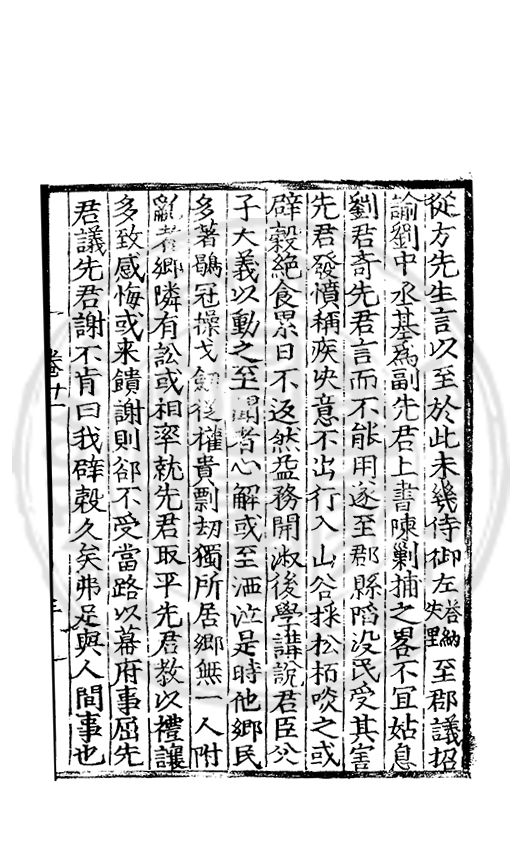 從方先生言以至於此未幾侍御左荅納失里至郡議招
諭劉中丞基為副先君上書陳剿捕之畧不宜姑息
劉君奇先君言而不能用遂至郡縣陷没民受其害
先君發憤稱疾失意不出行入山谷採松栢啖之或
辟糓絶食累日不返然益務開淑後學講說君臣父
子大義以動之至聞者心解或至洒泣是時他鄉民
多著鶡冠操戈劔從權貴剽刼獨所居鄉無一人附
亂者鄉隣有訟或相率就先君取平先君教以禮讓
多致感悔或来饋謝則郤不受當路以幕府事屈先
君議先君謝不肯曰我辟糓久矣弗足與人間事也
卷十一